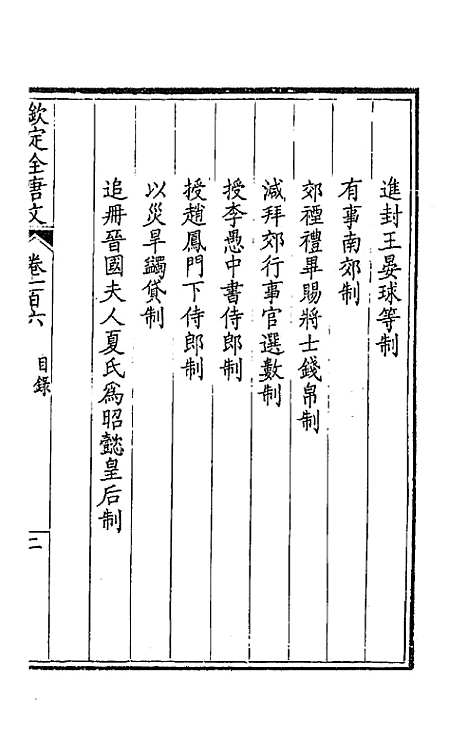 進封王晏球等制
有事南郊制
郊禋禮畢賜將士錢帛制
減拜郊行事官選數制
授李愚中書侍郎制
授趙鳳門下侍郎制
以災旱蠲貸制
追冊晉國夫人夏氏爲昭懿皇后制
欽定全唐文 卷一百六 目錄 二